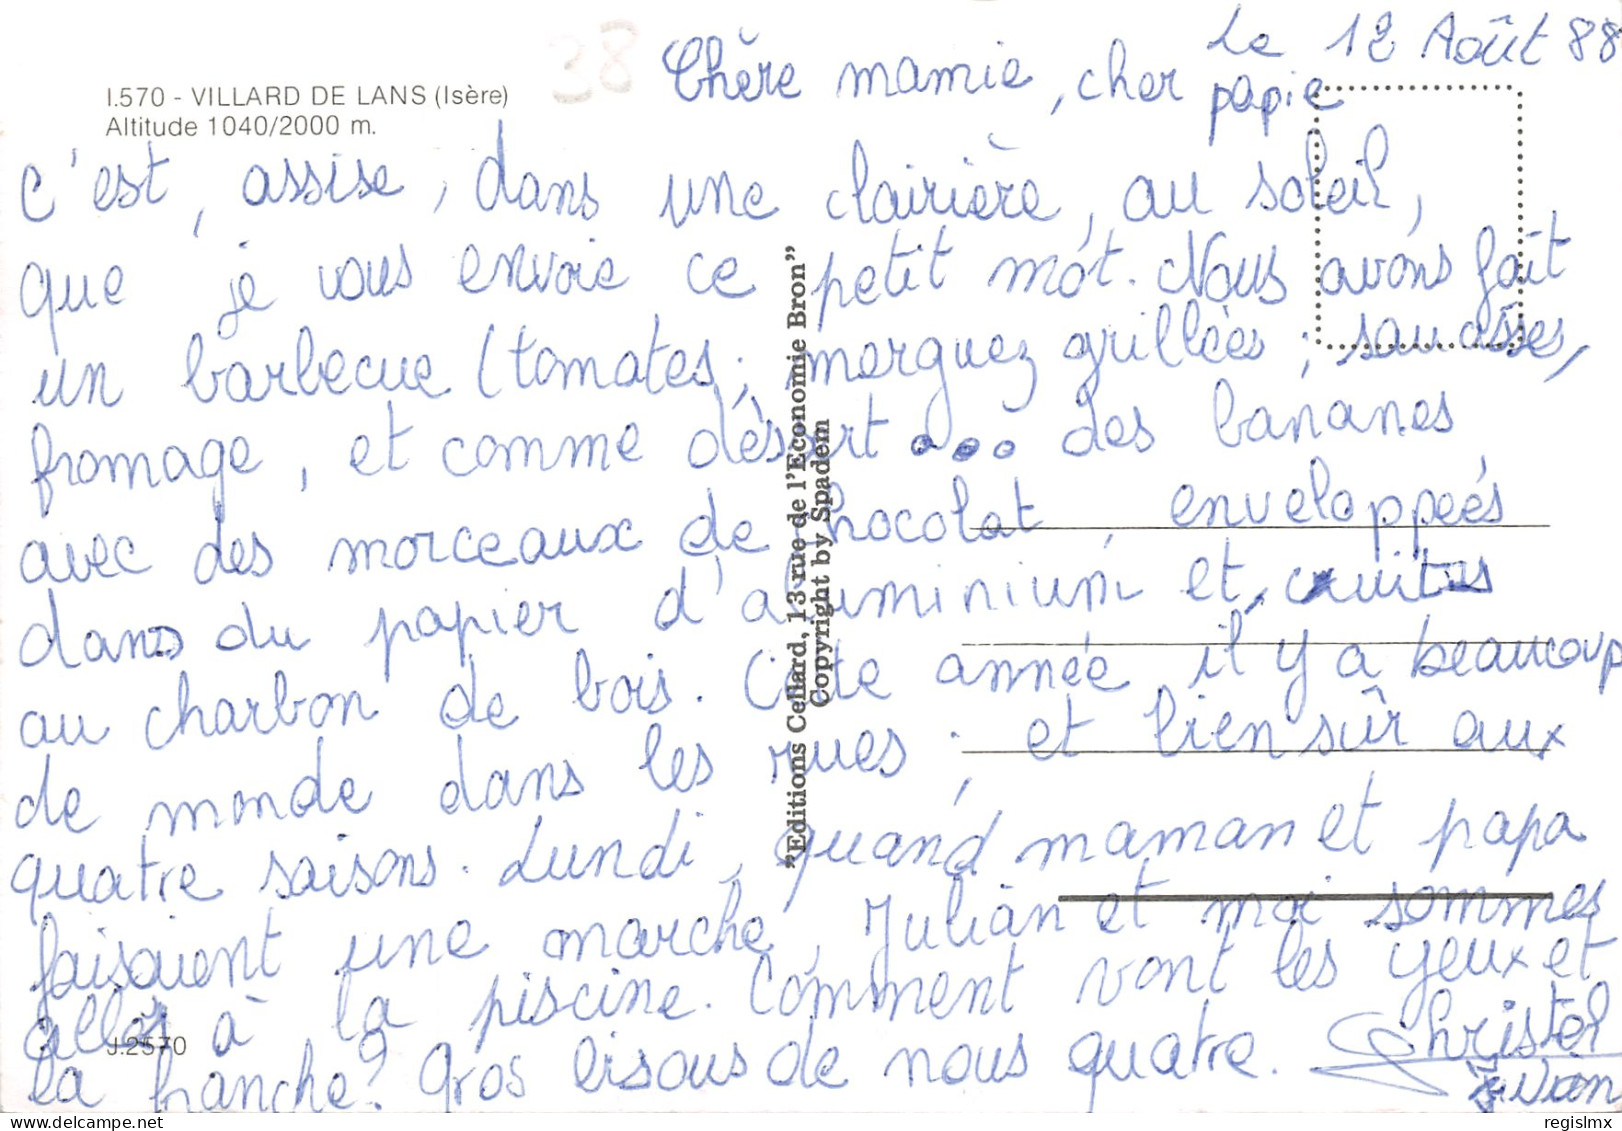 38
Le 12 Août 88
I.570 - VILLARD DE LANS (Isère)
Altitude 1040/2000 m.
Chère mamie, cher papie
c'est, assise, dans une clairière, au soleil,
que je vous envoie ce petit mot. Nous avons fait
un barbecue (tomates; merguez grillées; saucisses,
fromage, et comme dessert... des bananes
avec des morceaux de chocolat, enveloppées
dans du papier d'aluminium et, cuites
au charbon de bois. Cette année il y a beaucoup
de monde dans les rues; et bien sûr aux
quatre saisons. Lundi, quand maman et papa
faisaient une marche, Julian et moi sommes
allés à la piscine. Comment vont les yeux et
la hanche? Gros bisous de nous quatre. Christel
"Editions Cellard, 13 rue de l'Economie Bron"
Copyright by Spadem
J.2570
regislmx